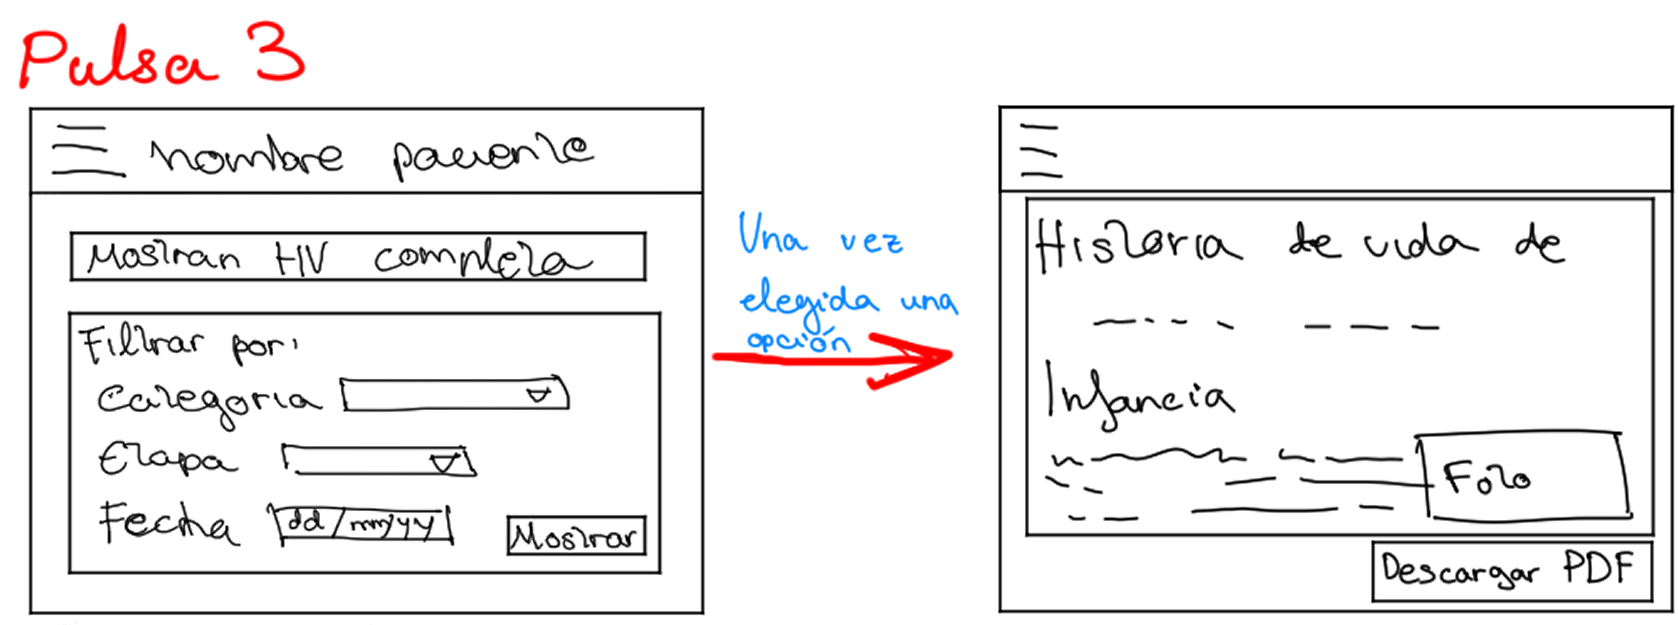 Pulsa 3
nombre paciente
Mostrar HV completa
Filtrar por:
Categoria
Etapa
Fecha dd/mm/yy
Mostrar
Una vez
elegida una
opción
Historia de vida de
Infancia
Foto
Descargar PDF